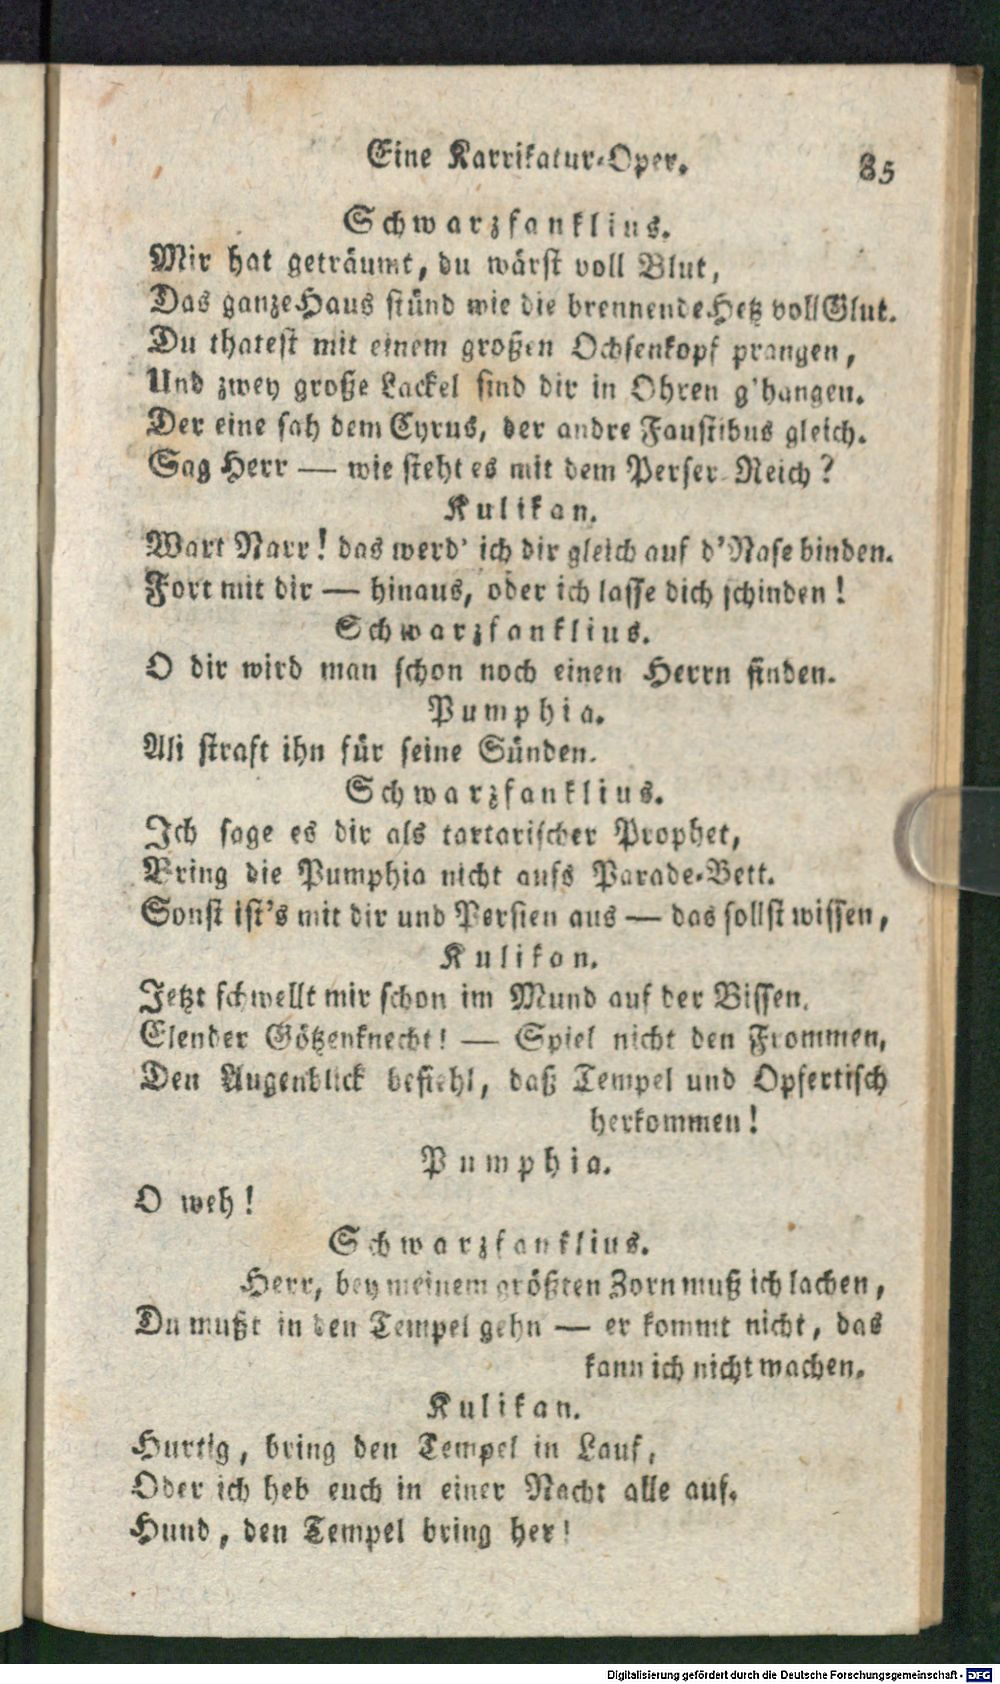 Eine Karrikatur-Oper. 85
Schwarzfanklius.
Mir hat geträumt, du wärst voll Blut,
Das ganze Haus stünd wie die brennende Hetz voll Glut.
Du thatest mit einem großen Ochsenkopf prangen,
Und zwey große Lackel sind dir in Ohren g'hangen.
Der eine sah dem Cyrus, der andre Faustibus gleich.
Sag Herr — wie steht es mit dem Perser-Reich?
Kulikan.
Wart Narr! das werd' ich dir gleich auf d'Nase binden.
Fort mit dir — hinaus, oder ich lasse dich schinden!
Schwarzfanklius.
O dir wird man schon noch einen Herrn finden.
Pumphia.
Ali straft ihn für seine Sünden.
Schwarzfanklius.
Ich sage es dir als tartarischer Prophet,
Bring die Pumphia nicht aufs Parade-Bett.
Sonst ist's mit dir und Persien aus — das sollst wissen,
Kulikan.
Jetzt schwellt mir schon im Mund auf der Bissen.
Elender Götzenknecht! — Spiel nicht den Frommen,
Den Augenblick befiehl, daß Tempel und Opfertisch
herkommen!
Pumphia.
O weh!
Schwarzfanklius.
Herr, bey meinem größten Zorn muß ich lachen,
Du mußt in den Tempel gehn — er kommt nicht, das
kann ich nicht machen.
Kulikan.
Hurtig, bring den Tempel in Lauf,
Oder ich heb euch in einer Nacht alle auf.
Hund, den Tempel bring her!
Digitalisierung gefördert durch die Deutsche Forschungsgemeinschaft - DFG